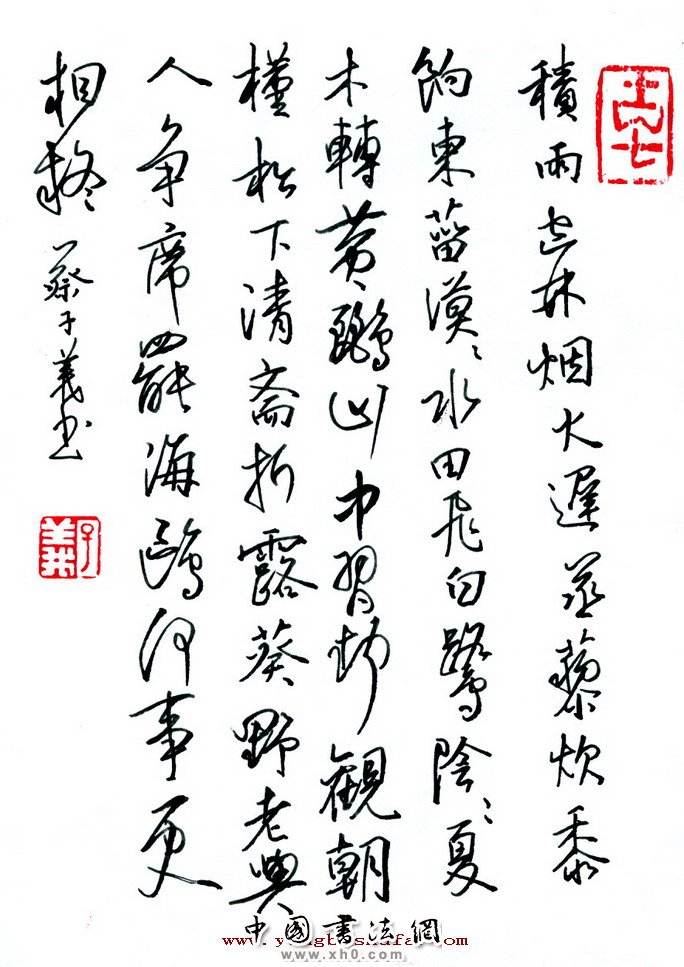 積雨空林烟火遲蒸藜炊黍
餉東菑漠〻水田飛白鷺陰〻夏
木轉黄鸝山中習静觀朝
槿松下清斋折露葵野老與
人争席罷海鷗何事更
相疑 蔡子義书
子義
中國書法網
www.xh0.com